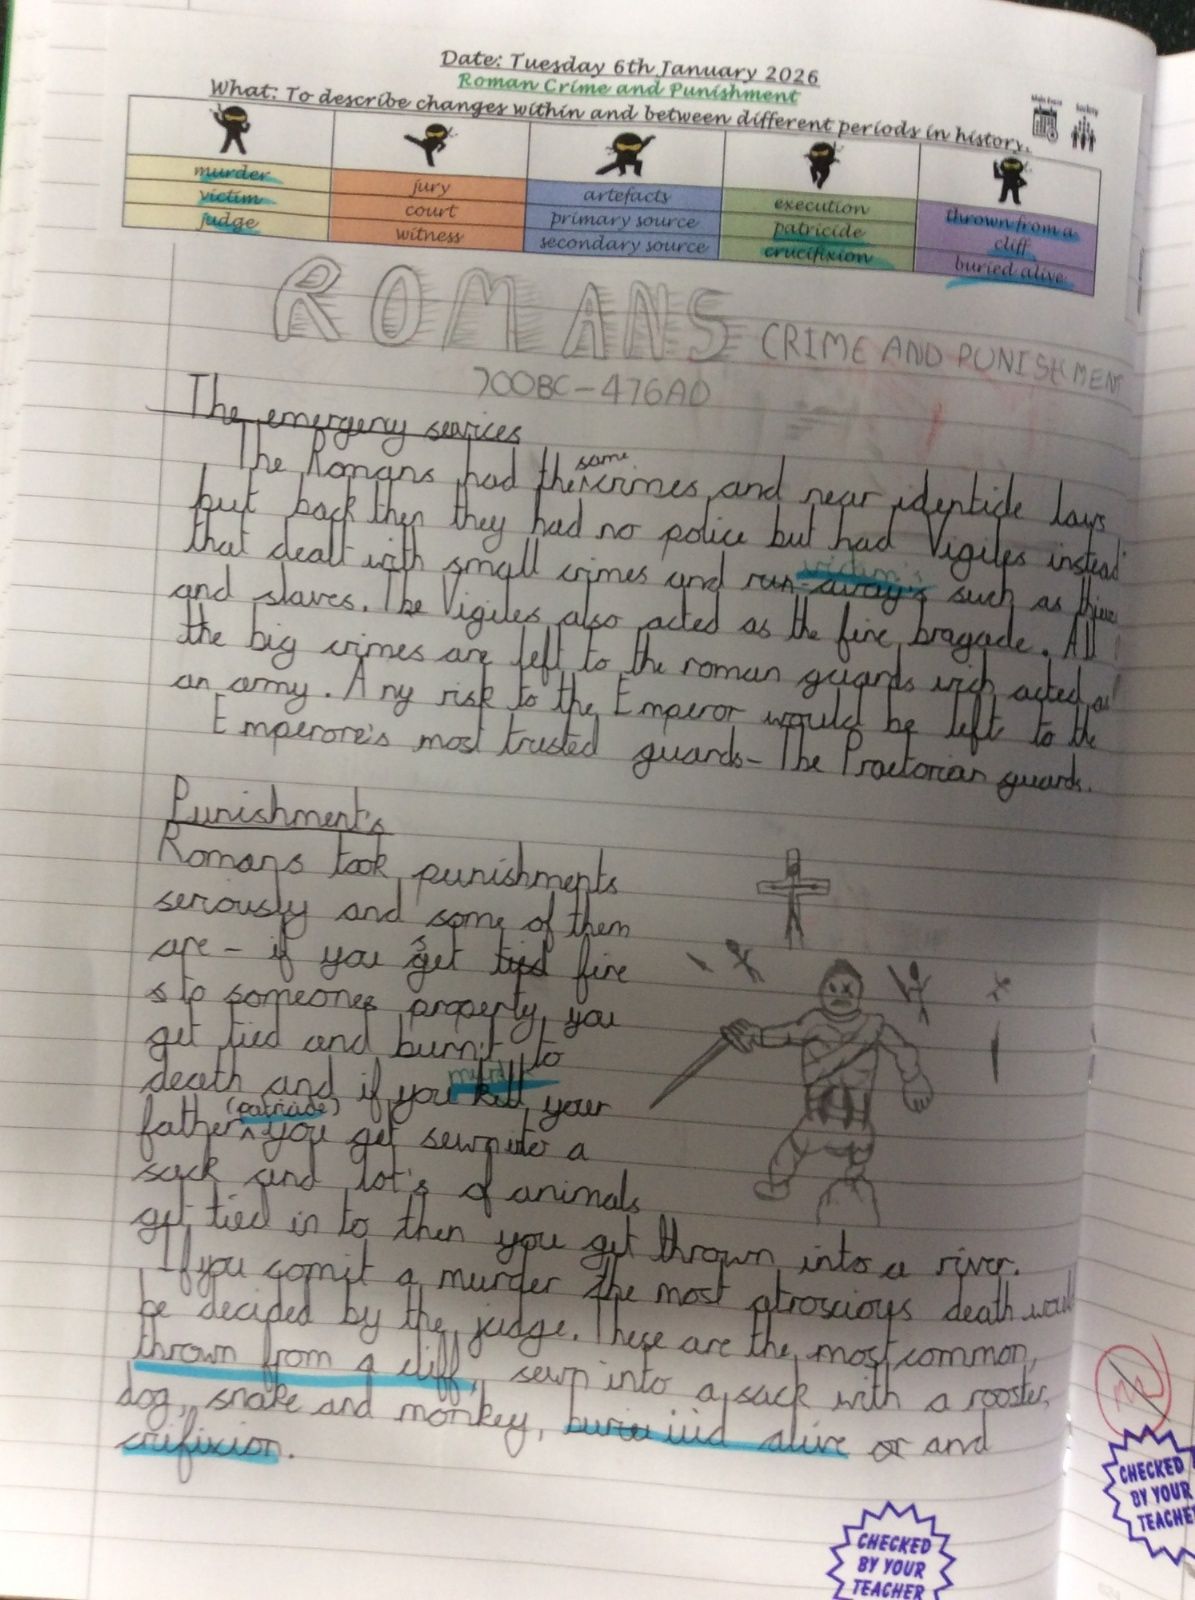 Date: Tuesday 6th January 2026
Roman Crime and Punishment
What: To describe changes within and between different periods in history.
murder
victim
judge
jury
court
witness
artefacts
primary source
secondary source
execution
patricide
crucifixion
thrown from a
cliff
buried alive
ROMANS CRIME AND PUNISHMENT
700BC-476AD
The emergency services
The Romans had the same crimes and near identicle laws
but back then they had no police but had Vigiles instead
that dealt with small crimes and run-away's victim's such as
and slaves. The Vigiles also acted as the fire bragade. All
the big crimes are left to the roman guards wich acted as
an army. Any risk to the Emperor would be left to the
Emperore's most trusted guards- The Praetorian guards.
Punishment's
Romans took punishments
seriously and some of them
are - if you set fire
to someones property you
get tied and burnt to
death and if you kill murder your
father (patricide) you get sewn into a
sack and lot's of animals
get tied in to then you get thrown into a river.
If you comit a murder the most atroscious death would
be decided by the judge. These are the most common,
thrown from a cliff, sewn into a sack with a rooster,
dog, snake and monkey, alive or and
crifixion.
CHECKED
BY YOUR
TEACHER
CHECKED
BY YOUR
TEACHE